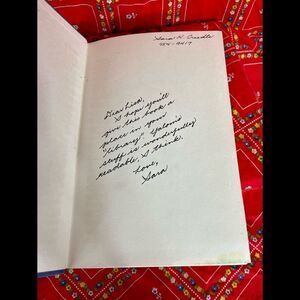 Sara K. Creedle
924-9417
Dear Lisa,
I hope you'll
give this book a
place in your
"library". Yalom's
stuff is wonderfully
readable, I think.
Love,
Sara